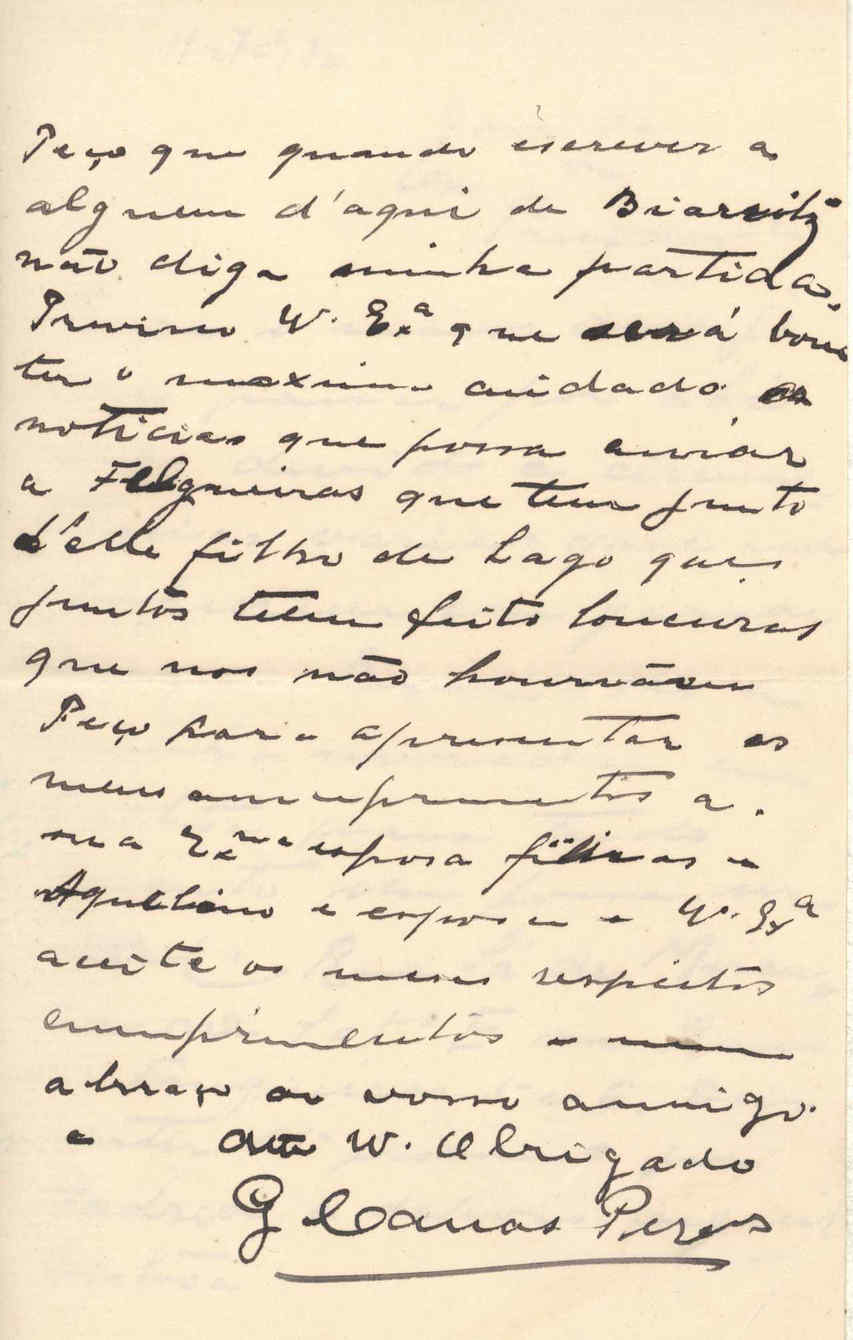 Peço que quando escrever a
alguem d'aqui de Biarritz
não diga minha partida.
Previno V. Exª que será bom
ter o maximo cuidado as
noticias que possa enviar
a Felgueiras que tem junto
d'elle filho de Lago que
juntos teem feito loucuras
que nos não
Peço para apresentar os
meus cumprimentos a
sua Exma esposa filhas e
Aquelino e esposa e V. Exª
aceite os meus respeitos
cumprimentos e um
abraço do vosso amigo
e Att V. Obrigado
G Canas Peres